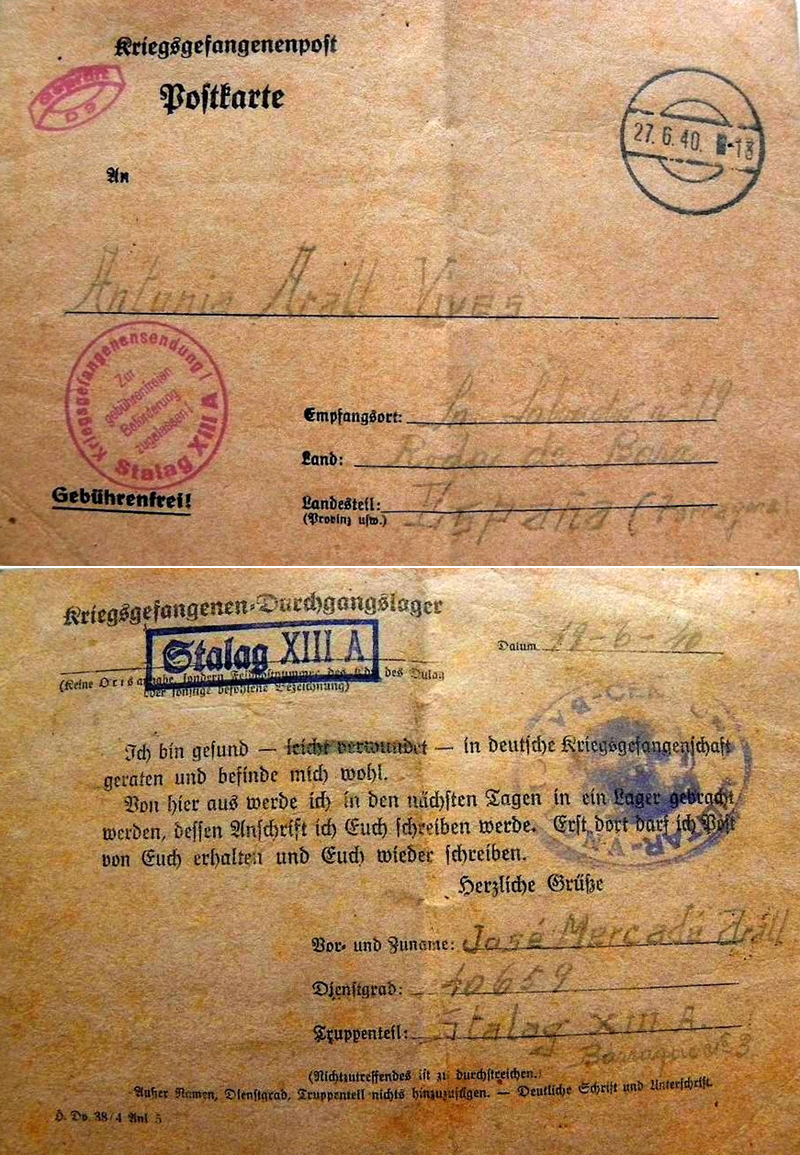 Kriegsgefangenenpost
Postkarte
Geprüft
27.6.40. -13
An
Antonia Arall Vives
Kriegsgefangenensendung!
Zur
gebührenfreien
Beförderung
zugelassen!
Stalag XIII A
Empfangsort: nº 19
Land: Roda de Bará
Gebührenfrei!
Landesteil: España (Tarragona)
(Provinz usw.)
Kriegsgefangenen-Durchgangslager
Stalag XIII A
Datum
(Keine Ortsangabe, sondern Feldpostnummer des des Dulag
oder sonstige befohlene Bezeichnung)
Ich bin gesund — leicht verwundet — in deutsche Kriegsgefangenschaft
geraten und befinde mich wohl.
Von hier aus werde ich in den nächsten Tagen in ein Lager gebracht
werden, dessen Anschrift ich Euch schreiben werde. Erst dort darf ich Post
von Euch erhalten und Euch wieder schreiben.
Herzliche Grüße
Vor- und Zuname: José Mercadé Aráll
Dienstgrad: 40659
Truppenteil: Stalag XIII A.
Barraque nº 3
(Nichtzutreffendes ist zu durchstreichen.)
Außer Namen, Dienstgrad, Truppenteil nichts hinzuzufügen. — Deutliche Schrift und Unterschrift.
H. Dv. 38/4 Anl 5